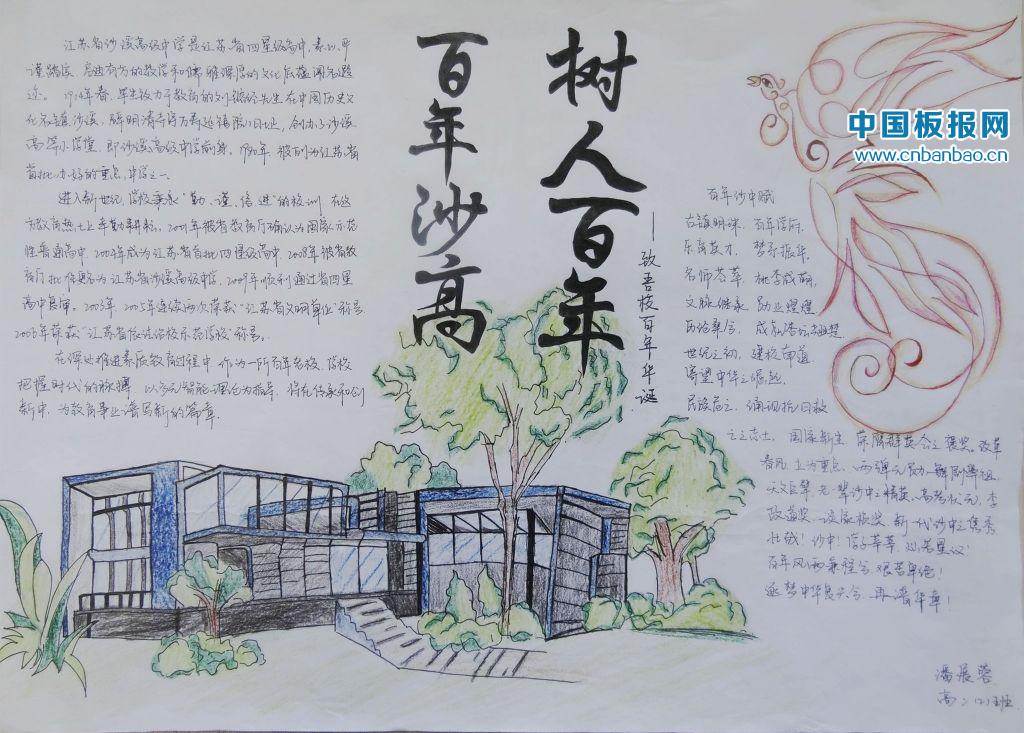 树人百年
百年沙高
——致吾校百年华诞
江苏省沙溪高级中学是江苏省四星级高中,素以严
谨踏实、启迪有为的教学和儒雅深厚的文化底蕴闻名遐
迩。1914年春,毕生致力于教育的刘
先生在中国历史文
化名镇沙溪,
旧址,创办了沙溪
高等小学堂,即沙溪高级中学前身。
年,被列为江苏省
首批办好的重点中学之一。
进入新世纪,学校秉承“勤、谨、信、进”的校训,在这
方教育热土上辛勤耕耘。2001年被省教育厅确认为国家示范
性普通高中,2004年成为江苏省首批四星级高中,2008年被省教
育厅批准更名为江苏省沙溪高级中学,2009年顺利通过省四星
高中复审。2003年、2005年连续两次荣获“江苏省文明单位”称号,
2006年荣获“江苏省依法治校示范学校”称号。
在深入推进素质教育过程中,作为一所百年名校,学校
把握时代的脉搏,以多元智能理论为指导,将在传承和创
新中,为教育事业谱写新的篇章。
百年沙中赋
古镇明珠,百年学府,
乐育英才,梦系振华,
名师荟萃,桃李成荫,
文脉继承,勋业煌煌
世纪之初,建校南
寄望中华之崛起,
民族危亡,涌现抗日救
亡之志士,国家新生,荣膺群英会之褒奖。改革
春风,上为重点,两弹元勋,
李
政道奖,谈家桢奖,新一代沙中之俊秀
壮哉!沙中!学子莘莘,灿若星汉!
百年风雨兼程兮,艰苦卓绝!
逐梦中华复兴兮,再谱华章!
潘展蓉
高二(2)班
中国板报网
www.cnbanbao.cn